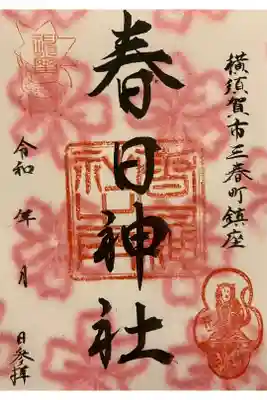 横須賀市三春町鎮座
春日神社
令和 年 月
日参拝